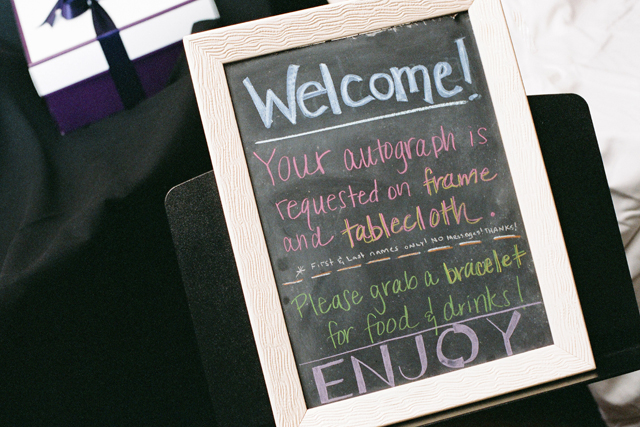 Welcome!
Your autograph is
requested on frame
and tablecloth.
* First & Last names only! NO messages! THANKS!
Please grab a bracelet
for food & drinks!
ENJOY